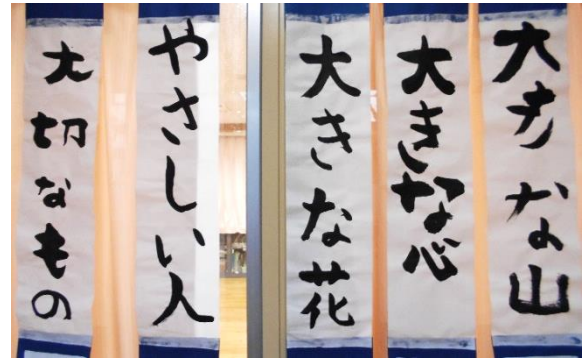 大きな山
大きな心
大きな花
やさしい人
大切なもの